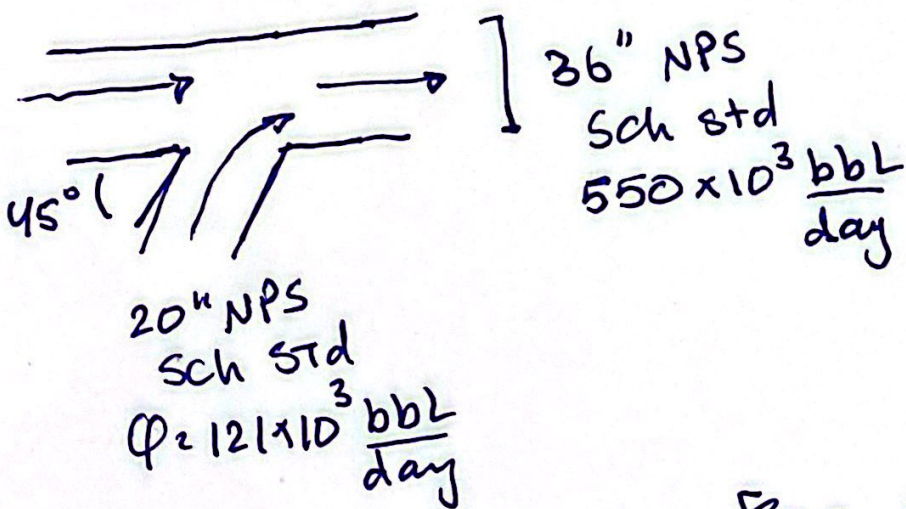 36" NPS
Sch std
550×10³ bbL/day
45°
20" NPS
Sch STd
Q = 121×10³ bbL/day